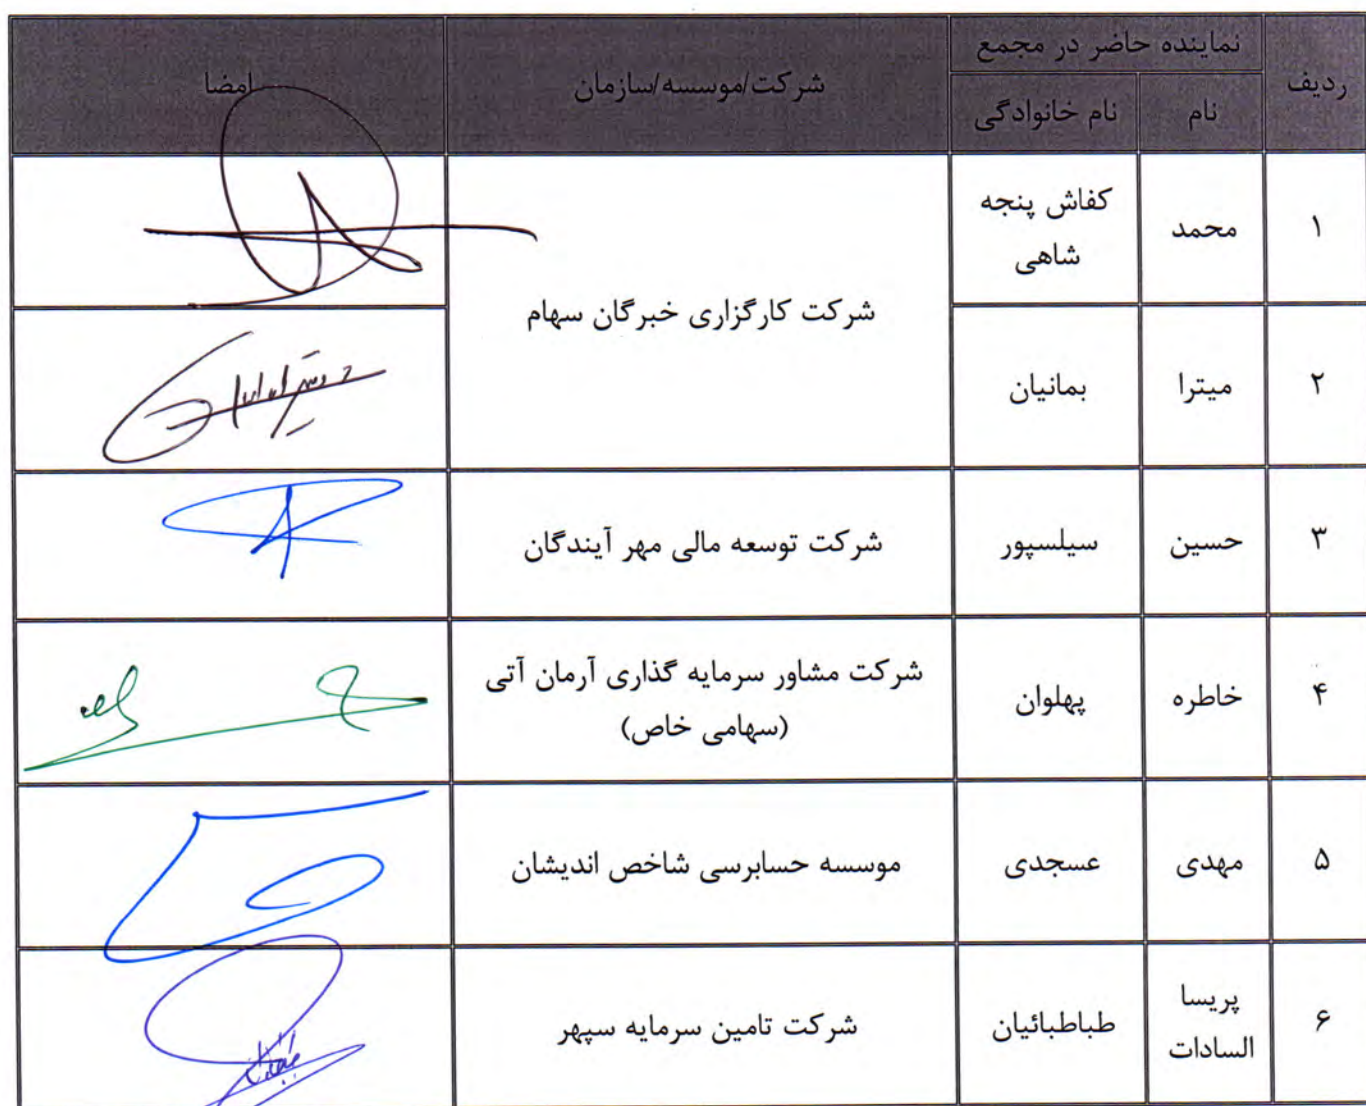 ردیف
نماینده حاضر در مجمع
نام
نام خانوادگی
شرکت/موسسه/سازمان
امضا
۱
محمد
کفاش پنجه
شاهی
شرکت کارگزاری خبرگان سهام
۲
میترا
بمانیان
۳
حسین
سیلسپور
شرکت توسعه مالی مهر آیندگان
۴
خاطره
پهلوان
شرکت مشاور سرمایه گذاری آرمان آتی
(سهامی خاص)
۵
مهدی
عسجدی
موسسه حسابرسی شاخص اندیشان
۶
پریسا
السادات
طباطبائیان
شرکت تامین سرمایه سپهر